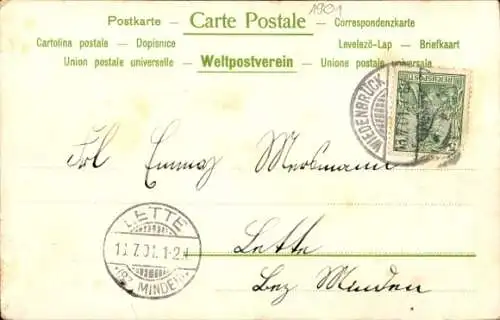 1901
Postkarte - Carte Postale - Correspondenzkarte
Cartolina postale - Dopisnice Levelező-Lap - Briefkaart
Union postale universelle - Weltpostverein - Unione postale universale
WIEDENBRÜCK
REICHSPOST
Frl Emmy Mersmann
LETTE
7.01. 1-2N
Lette
MINDEN
Bez Minden